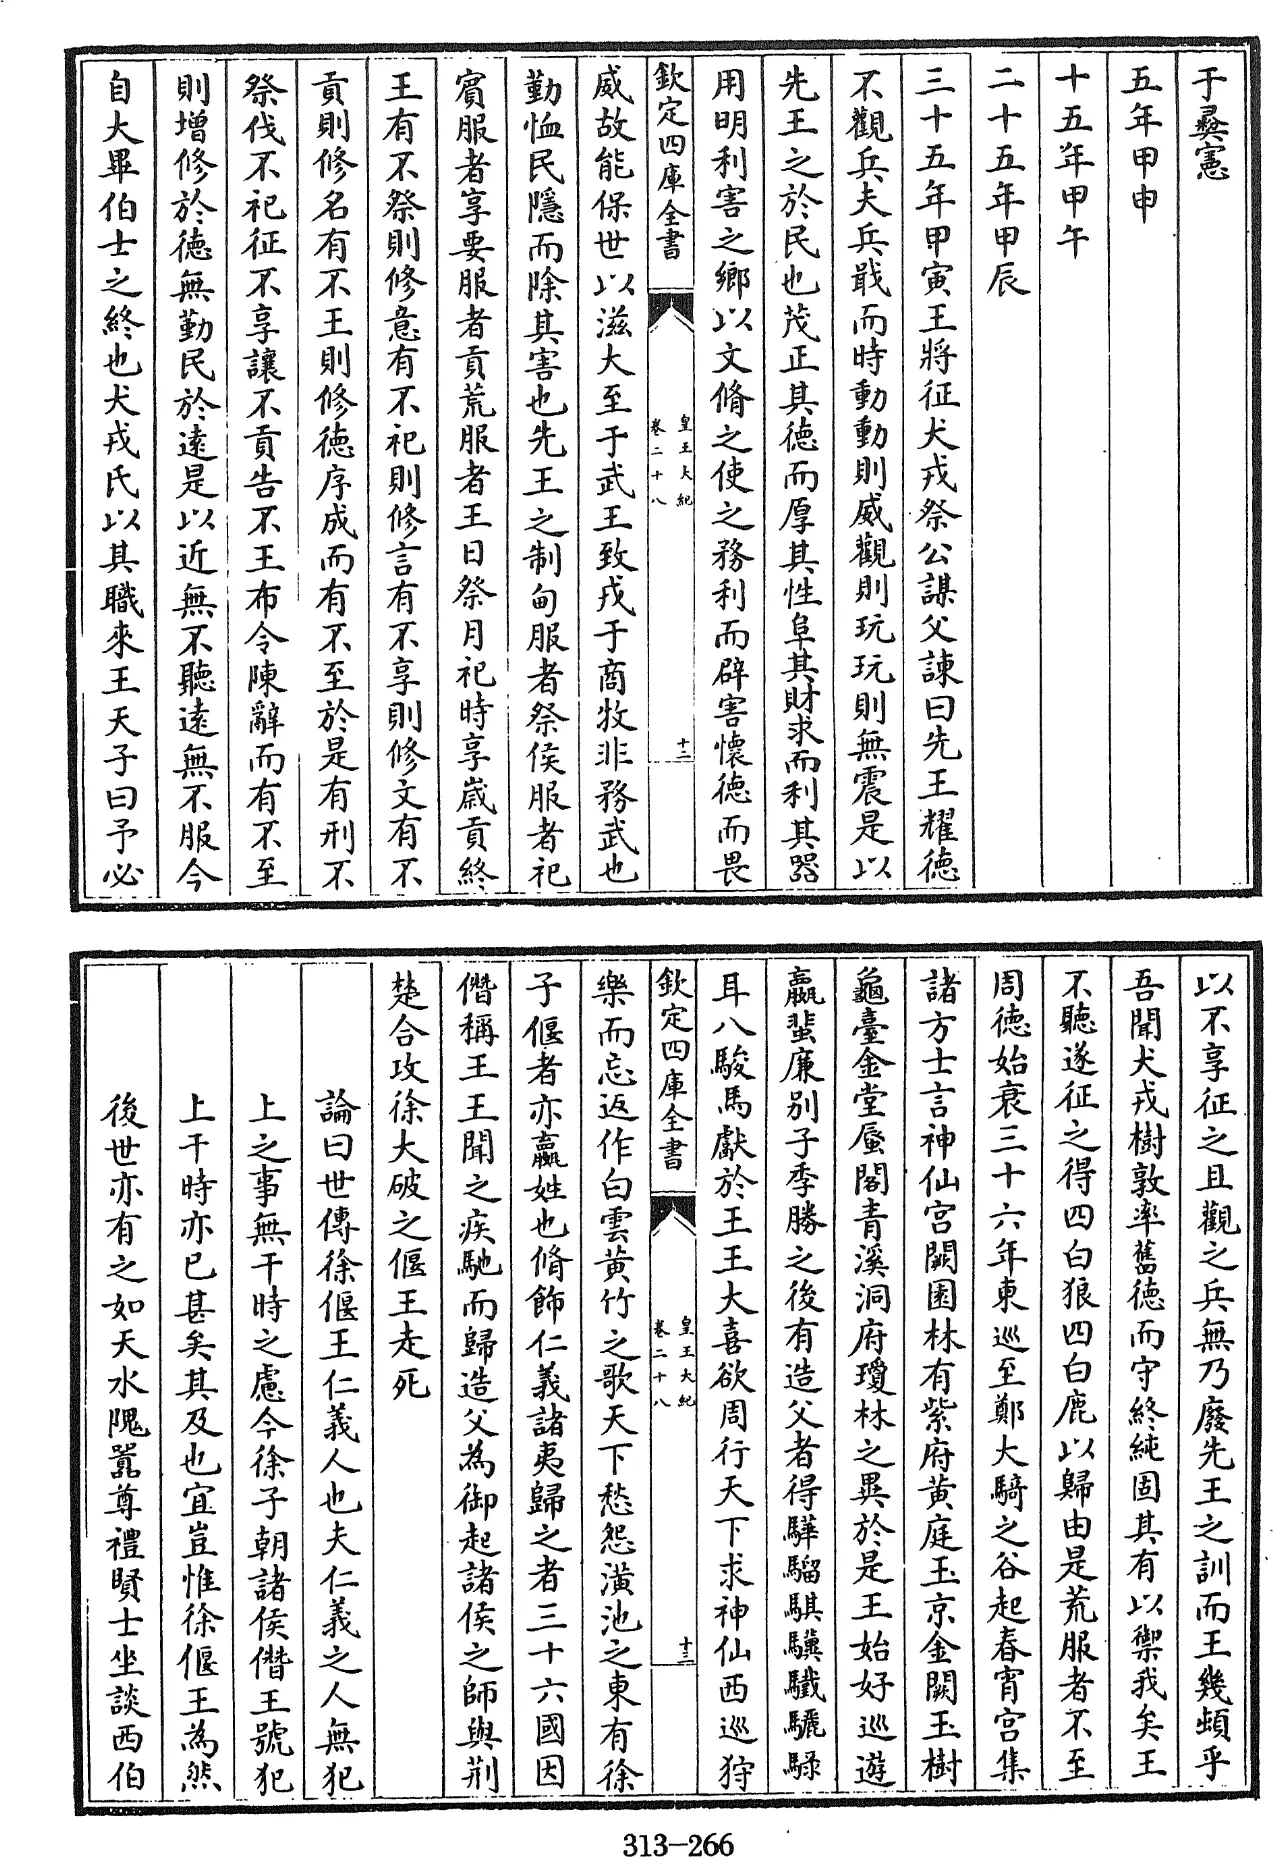 于彛憲
五年甲申
十五年甲午
二十五年甲辰
三十五年甲寅王將征犬戎祭公謀父諫曰先王耀徳
不觀兵夫兵戢而時動動則威觀則玩玩則無震是以
先王之於民也茂正其徳而厚其性阜其財求而利其器
用明利害之鄉以文脩之使之務利而辟害懷徳而畏
欽定四庫全書
皇王大紀
卷二十八
十二
威故能保世以滋大至于武王致戎于商牧非務武也
勤恤民隱而除其害也先王之制甸服者祭侯服者祀
賓服者享要服者貢荒服者王日祭月祀時享歳貢終
王有不祭則修意有不祀則修言有不享則修文有不
貢則修名有不王則修徳序成而有不至於是有刑不
祭伐不祀征不享讓不貢告不王布令陳辭而有不至
則增修於徳無勤民於逺是以近無不聽逺無不服今
自大畢伯士之終也犬戎氏以其職來王天子曰予必
以不享征之且觀之兵無乃廢先王之訓而王幾頓乎
吾聞犬戎樹敦率舊徳而守終純固其有以禦我矣王
不聽遂征之得四白狼四白鹿以歸由是荒服者不至
周徳始衰三十六年東巡至鄭大騎之谷起春宵宫集
諸方士言神仙宫闕園林有紫府黄庭玉京金闕玉樹
龜臺金堂蜃閣青溪洞府瓊林之異於是王始好巡遊
嬴蜚廉别子季勝之後有造父者得驊騮騏驥驖驪騄
耳八駿馬獻於王王大喜欲周行天下求神仙西巡狩
欽定四庫全書
皇王大紀
卷二十八
十三
樂而忘返作白雲黄竹之歌天下愁怨潢池之東有徐
子偃者亦嬴姓也脩飾仁義諸夷歸之者三十六國因
僭稱王王聞之疾馳而歸造父為御起諸侯之師與荆
楚合攻徐大破之偃王走死
論曰世傳徐偃王仁義人也夫仁義之人無犯
上之事無干時之慮今徐子朝諸侯僭王號犯
上干時亦已甚矣其及也宜豈惟徐偃王為然
後世亦有之如天水隗囂尊禮賢士坐談西伯
313-266